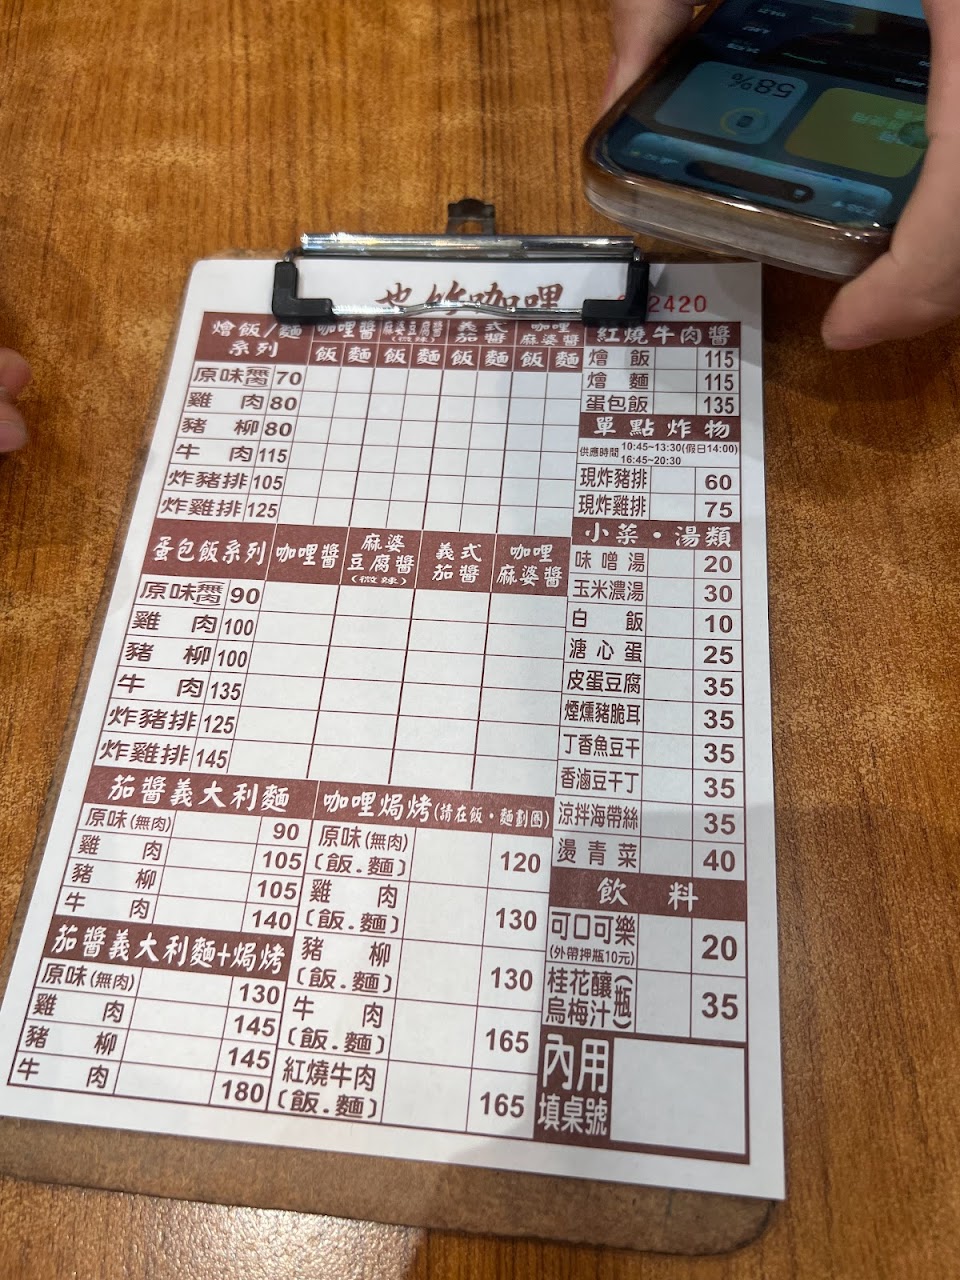 58%
咖哩
2420
燴飯/麵系列
咖哩醬
麻婆豆腐醬(微辣)
義式茄醬
咖哩麻婆醬
飯 麵 飯 麵 飯 麵 飯 麵
原味無肉 70
雞肉 80
豬柳 80
牛肉 115
炸豬排 105
炸雞排 125
蛋包飯系列
咖哩醬
麻婆豆腐醬(微辣)
義式茄醬
咖哩麻婆醬
原味無肉 90
雞肉 100
豬柳 100
牛肉 135
炸豬排 125
炸雞排 145
茄醬義大利麵
原味(無肉) 90
雞肉 105
豬柳 105
牛肉 140
茄醬義大利麵+焗烤
原味(無肉) 130
雞肉 145
豬柳 145
牛肉 180
咖哩焗烤(請在飯·麵劃圈)
原味(無肉)
(飯.麵) 120
雞肉
(飯.麵) 130
豬柳
(飯.麵) 130
牛肉
(飯.麵) 165
紅燒牛肉
(飯.麵) 165
紅燒牛肉醬
燴飯 115
燴麵 115
蛋包飯 135
單點炸物
供應時間 10:45~13:30(假日14:00)
16:45~20:30
現炸豬排 60
現炸雞排 75
小菜·湯類
味噌湯 20
玉米濃湯 30
白飯 10
溏心蛋 25
皮蛋豆腐 35
煙燻豬脆耳 35
丁香魚豆干 35
香滷豆干丁 35
涼拌海帶絲 35
燙青菜 40
飲料
可口可樂
(外帶押瓶10元) 20
桂花釀
烏梅汁(瓶) 35
內用
填桌號